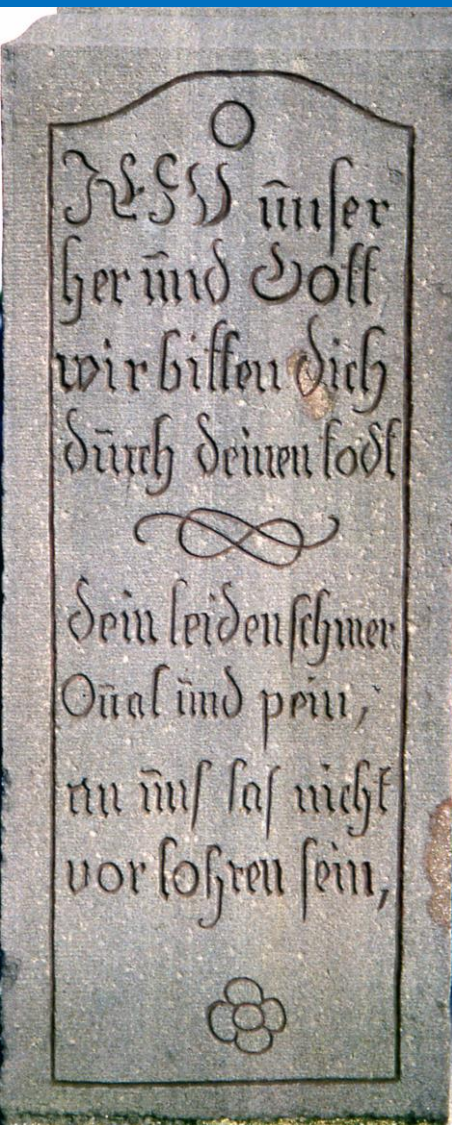 O
JESU ūnser
her ūnd Gott
wir bitten dich
dūrch deinen todt
dein leiden schmer
Qūal ūnd pein,
an ūns las nicht
vor lohren sein,